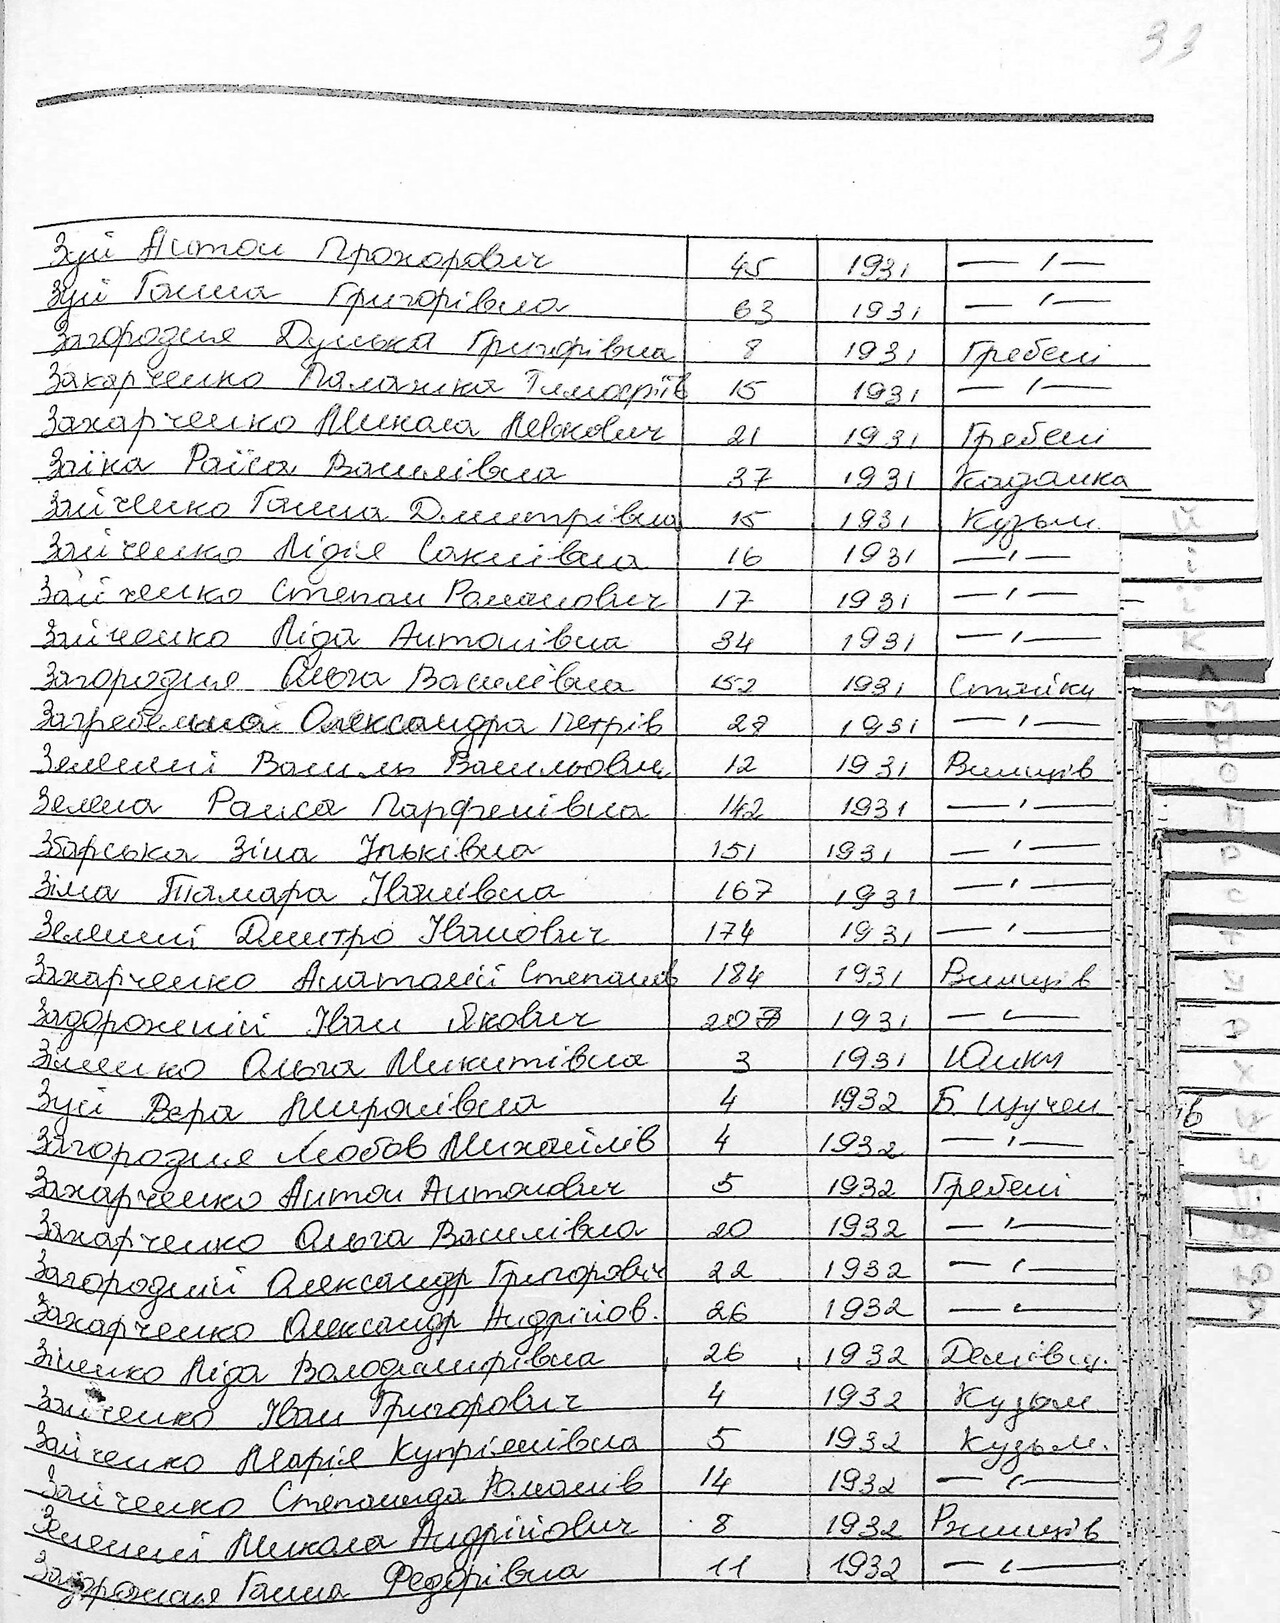 33
Зуй Антон Прохорович 45 1931 — ı —
Зуй Ганна Григорівна 63 1931 — ı —
Загородня Дунька Григорівна 8 1931 Гребені
Захарченко Палажка Тимофіїв 15 1931 — ı —
Захарченко Микола Левкович 21 1931 Гребені
Заїка Раїса Василівна 37 1931 Кадомка
Зайченко Ганна Дмитрівна 15 1931 Кузьм.
Зайченко Лідія Сакнівна 16 1931 — ı —
Зайченко Степан Романович 17 1931 — ı —
Зайченко Ліда Антонівна 34 1931 — ı —
Загородня Ольга Василівна 152 1931 Стайки
Загребельна Олександра Петрів 28 1931 — ı —
Зелений Василь Васильович 12 1931
Зелена Раиса Парфенівна 142 1931 — ı —
Збарська Зіна Ільківна 151 1931 — ı —
Зіма Тамара Іванівна 167 1931 — ı —
Зелений Дмитро Іванович 174 1931 — ı —
Захарченко Анатолій Степанів 184 1931
Задорожній Іван Якович 207 1931 — ı —
Зіненко Ольга Микитівна 3 1931 Юшки
Зуй Вера Миронівна 4 1932 Б. Щучен ів
Загородня Любов Михайлів 4 1932 — ı —
Захарченко Антон Антонович 5 1932 Гребені
Захарченко Ольга Василівна 20 1932 — ı —
Загородній Олександр Григорович 22 1932 — ı —
Захарченко Олександр Андрійов. 26 1932 — ı —
Зіненко Ліда Володимирівна 26 1932 Демівщ.
Зайченко Іван Григорович 4 1932 Кузьм
Зайченко Марія Купріянівна 5 1932 Кузьм.
Зайченко Степанида Романів 14 1932 — ı —
Зелений Микола Андрійович 8 1932 Ржищів
Задорожная Ганна Федорівна 11 1932 — ı —